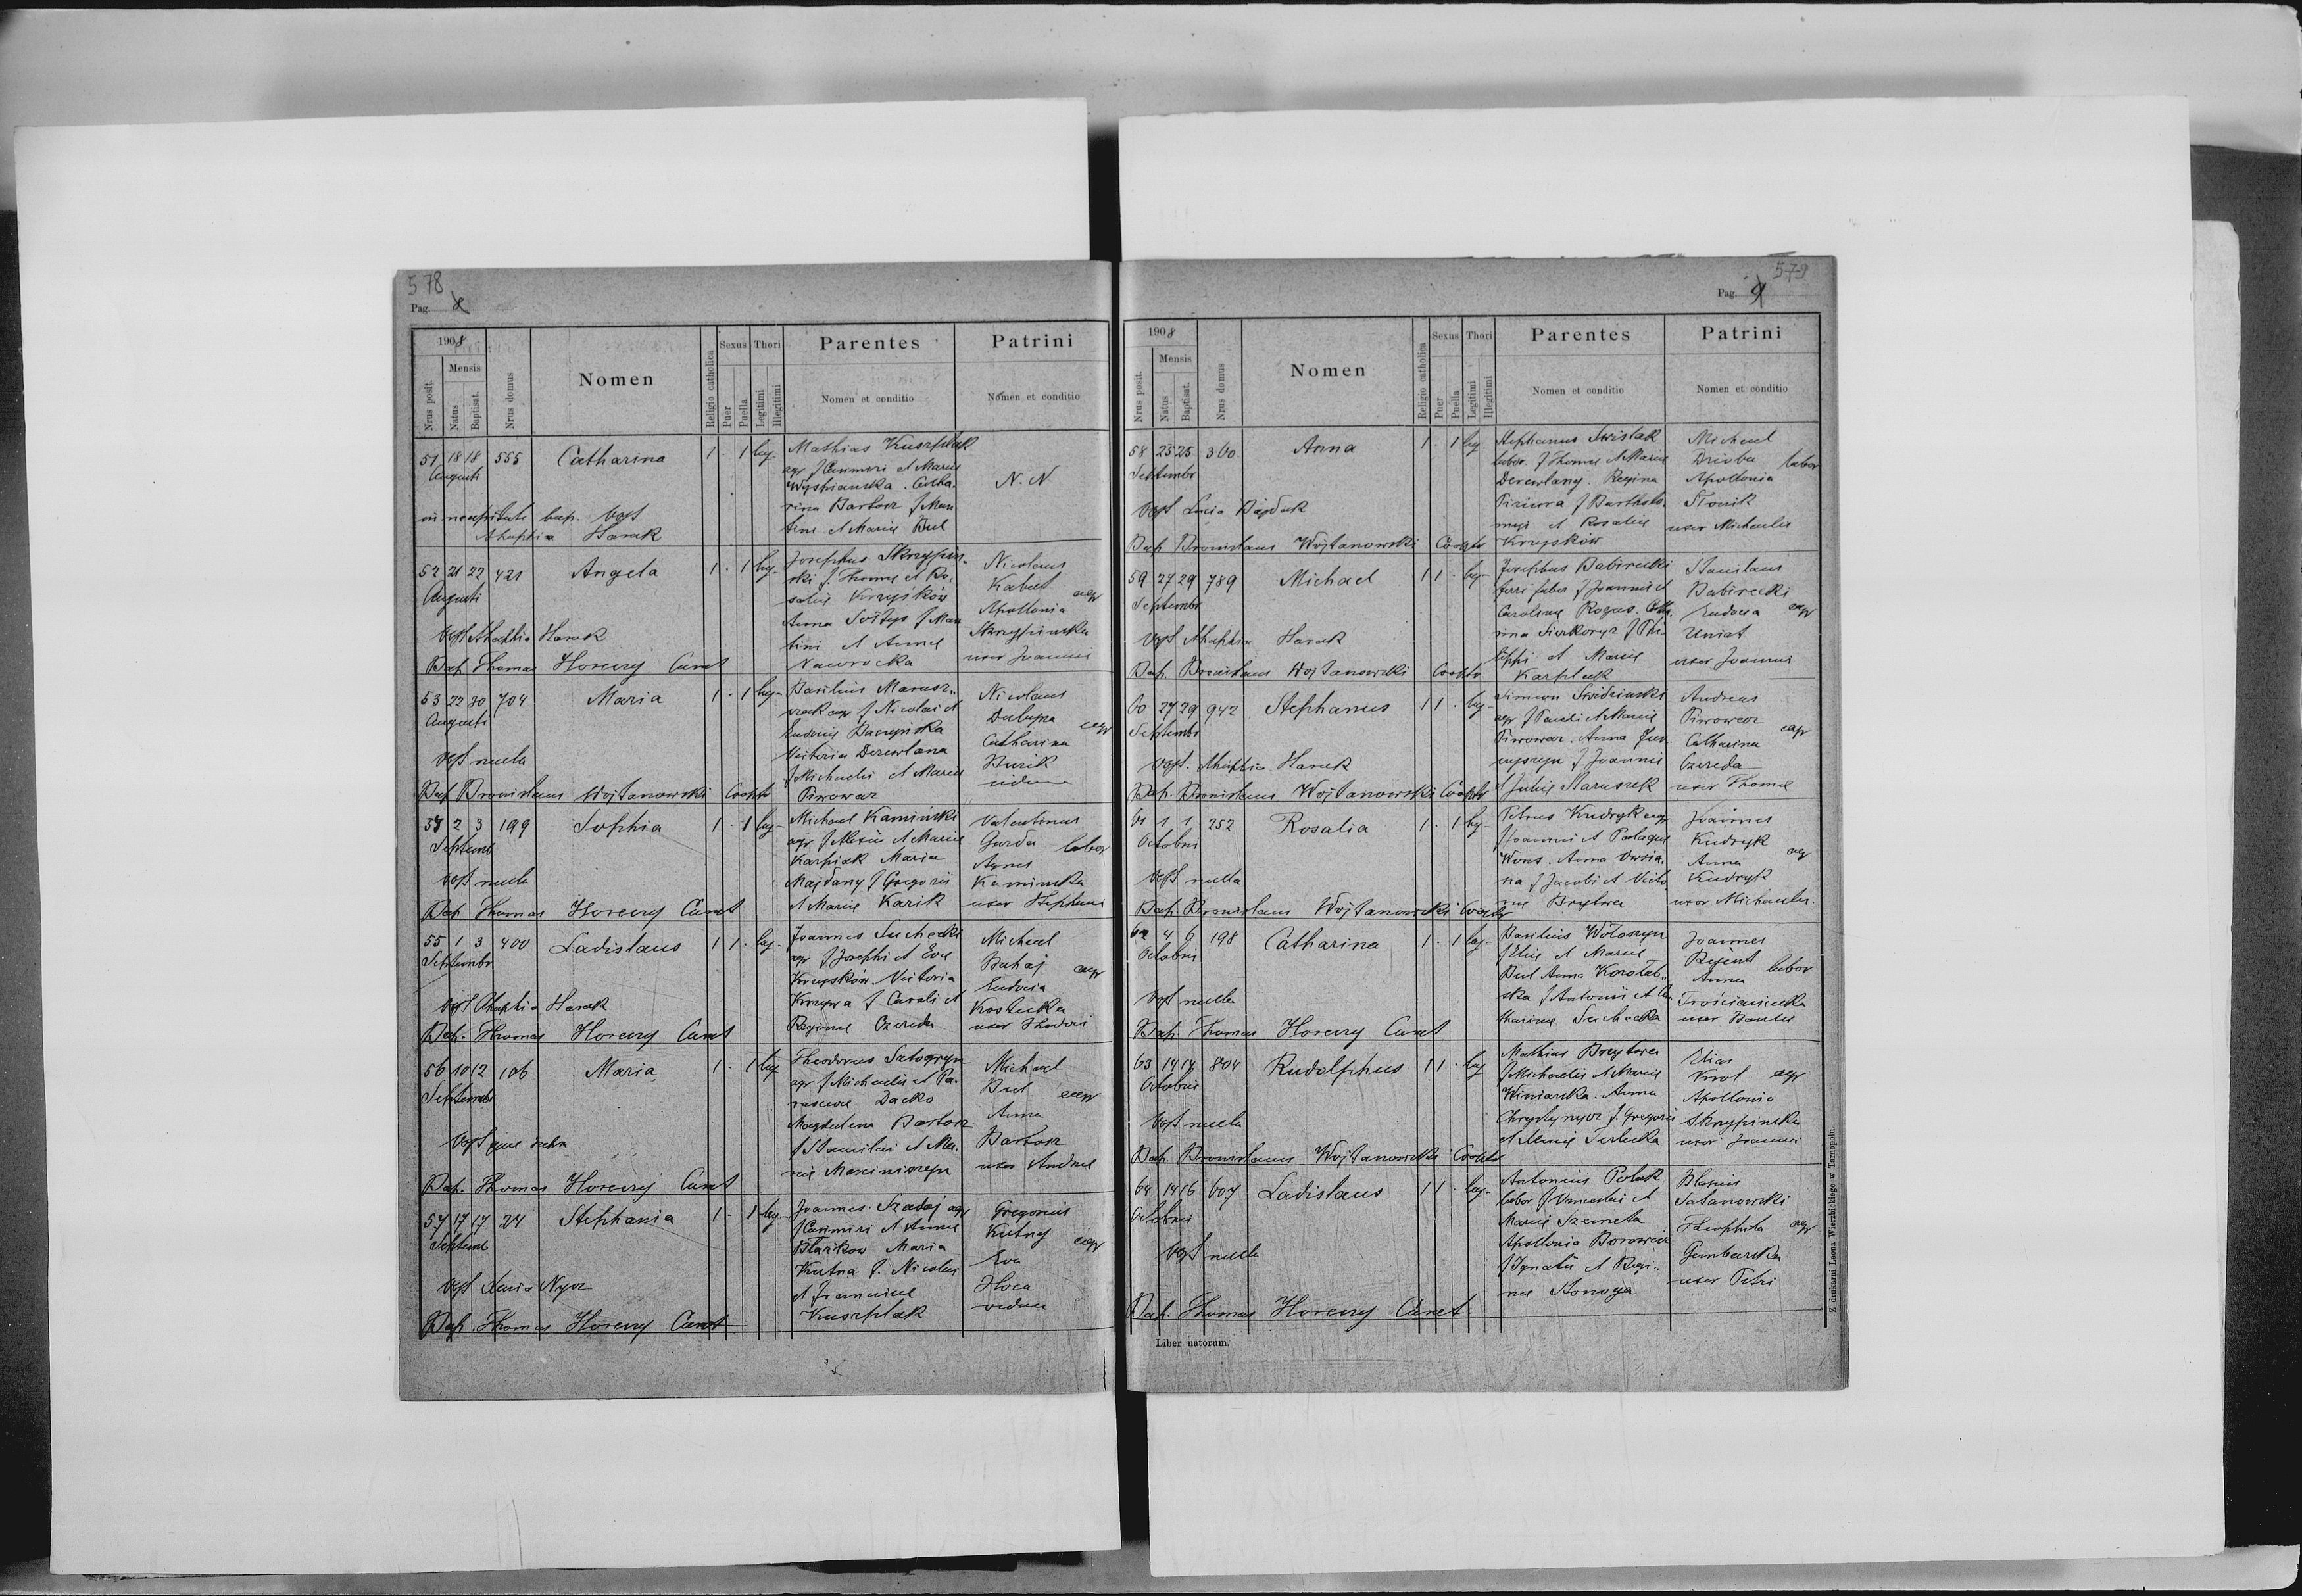 578
Pag. 8
1908
Nrus posit.
Mensis
Natus
Baptisat.
Nrus domus
Nomen
Religio catholica
Sexus
Puer
Puella
Thori
Legitimi
Illegitimi
Parentes
Nomen et conditio
Patrini
Nomen et conditio
51 18 18 555 Catharina 1 . 1 leg.
Augusti
Mathias Kuszplak
agr f Casimiri et Mariae
Catha-
rina Bartosz f Mar
tini et Mariae Bul
N. N
in necessitate bap. Obst
Harak
52 21 22 421 Angela 1 . 1 leg.
Augusti
Josephus Skrzypin
ski f. Thomae et Ro-
saliae Krzysków
Anna Sołtys f Mar
tini et Annae
Nawrocka
Nicolaus
Kabut agr
Apollonia
Skrzypinska
uxor Joannis
Obst Harak
Bap. Thomas Horeczy Curat
53 22 30 704 Maria 1 . 1 leg.
Augusti
Basilius Marusz-
czak agr f Nicolai et
Eudociae
Victoria Derewlana
f Michaelis et Mariae
Piwowar
Nicolaus
agr
Catharina
Burik
Obst nulla
Bap Bronislaus Wojtanowski Coop
54 2 3 199 Sophia 1 . 1 leg.
Septemb
Michael Kaminski
agr. f Alexii et Mariae
Karpiak Maria
Majdany f Gregorii
et Mariae Karik
Valentinus
Garda labor
Agnes
Kaminska
uxor Stephani
Obst nulla
Bap Thomas Horeczy Curat
55 1 3 400 Ladislaus 1 1 . leg.
Septembr
Joannes Suchecki
agr f Josephi et Evae
Krzysków Victoria
Krzywa f Caroli et
Reginae Czereda
Michael
Buhaj agr
Eudocia
Kostecka
uxor
Obst Harak
Bap. Thomas Horeczy Curat
56 10 12 106 Maria 1 . 1 leg
Septembr
Theodorus Sztogryn
agr f Michaelis et Pa-
rasceve Dacko
Magdalena Bartosz
f Stanislai et Ma-
riae Marciniszyn
Michael
Bul agr
Anna
Bartosz
uxor Andreae
Obst
Bap. Thomas Horeczy Curat
57 17 17 24 Stephania 1 . 1 leg.
Septemb
Joannes Szadaj agr
f Casimiri et Annae
Blarikow Maria
Kutna f. Nicolai
et Franciscae
Kuszplak
Gregorius
Kutny agr
Eva
Hoca
vidua
Obst Maria Nycz
Bap. Thomas Horeczy Curat
579
Pag. 9
1908
Nrus posit.
Mensis
Natus
Baptisat.
Nrus domus
Nomen
Religio catholica
Sexus
Puer
Puella
Thori
Legitimi
Illegitimi
Parentes
Nomen et conditio
Patrini
Nomen et conditio
58 25 25 360 Anna 1 . 1 leg
Septembr
Stephanus Swistak
labor. f Thomae et Mariae
Derewlany. Regina
Piziura f Bartholo
maei et Rosaliae
Krzysków
Michael
Dziuba labor
Apollonia
Słonik
uxor Michaelis
Obst Lucia Bajdak
Bap Bronislaus Wojtanowski Coop
59 27 29 789 Michael 1 1 . leg
Septembr
Josephus Babirecki
ferri faber f Joannis et
Carolinae Rogus. Catha-
rina Sierkoryz f Phi-
lippi et Mariae
Karpluk
Stanislaus
Babirecki
Eudocia agr
Uniat
uxor Joannis
Obst Harak
Bap. Bronislaus Wojtanowski Coop
60 27 29 942 Stephanus 1 1 . leg
Septembr
Simeon Swidzinski
agr f Pauli et Mariae
Piwowar. Anna
f Joannis
et Juliae Maruszak
Andreas
Piwowar
Catharina agr
Czereda
uxor Thomae
Obst. Harak
Bap. Bronislaus Wojtanowski Coop
61 1 1 252 Rosalia 1 . 1 leg
Octobris
Petrus Kudryk agr
f Joannis et Palagiae
Wons. Anna
f Jacobi et Victo
riae Brytwa
Joannes
Kudryk
Anna agr
Kudryk
uxor Michaelis
Obst nulla
Bap. Bronislaus Wojtanowski Coop
62 4 6 198 Catharina 1 . 1 leg.
Octobris
Basilius Wołoszyn
f Eliae et Mariae
Bul Anna
f Antonii et Ca
tharinae Suchecka
Joannes
Bejent labor
Anna
Trościaniecka
uxor Pauli
Obst nulla
Bap. Thomas Horeczy Curat
63 14 17 804 Rudolphus 1 1 . leg
Octobris
Mathias Brytwa
f Michaelis et Mariae
Winiarska. Anna
f. Gregorii
et Mariae Terlecka
Elias
Krol agr
Apollonia
Skrzypinska
uxor Joannis
Obst nulla
Bap. Bronislaus Wojtanowski Coop
64 14 16 607 Ladislaus 1 1 . leg.
Octobris
Antonius Polak
labor f Vincentii et
Mariae Szemeta
Apollonia Borowicz
f Ignatii et Regi-
nae Stonoga
Blasius
Satanowski
Theophila agr
Gembarska
uxor Petri
Obst nulla
Bap. Thomas Horeczy Curat
Liber natorum.
Z drukarni Leona Wierzbickiego w Tarnopolu.